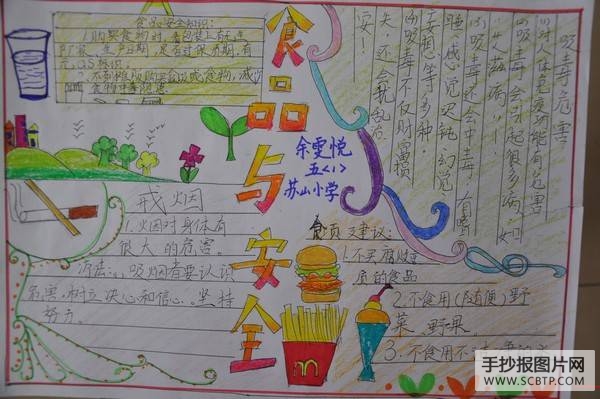 食品与安全
余雯悦
五<1>
苏山小学
食品安全知识:
1.购买食物时,看包装上有无生
产厂家、生产日期,是否过保质期,有
无QS标识。
食物中毒
戒烟
1.烟对身体有
很大的危害。
办法:1.吸烟者要认识
危害,树立决心和信心。坚持
努力。
吸毒危害
(1)对人体免疫功能有危害
(2)吸毒会引起很多病,如
(3)吸毒还会中毒,有嗜
睡、感觉迟钝、幻觉
妄想等多种
吸毒不仅财富损
失,还会扰乱治
安!
建议:
1.不买腐败变
质的食品
2.不食用(随便)野
菜、野果。
3.不食用不
手抄报图片网
WWW.SCBTP.COM